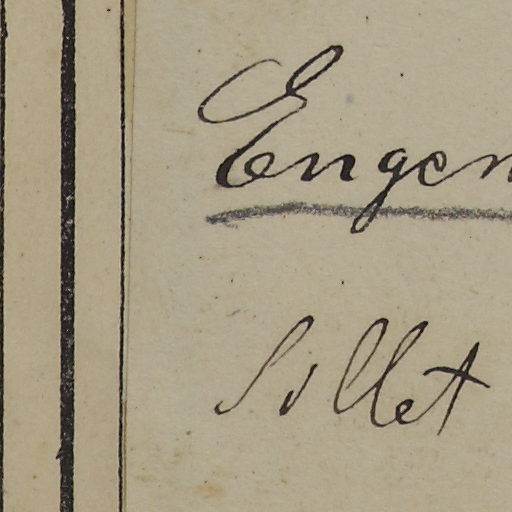 Engen
Sillet